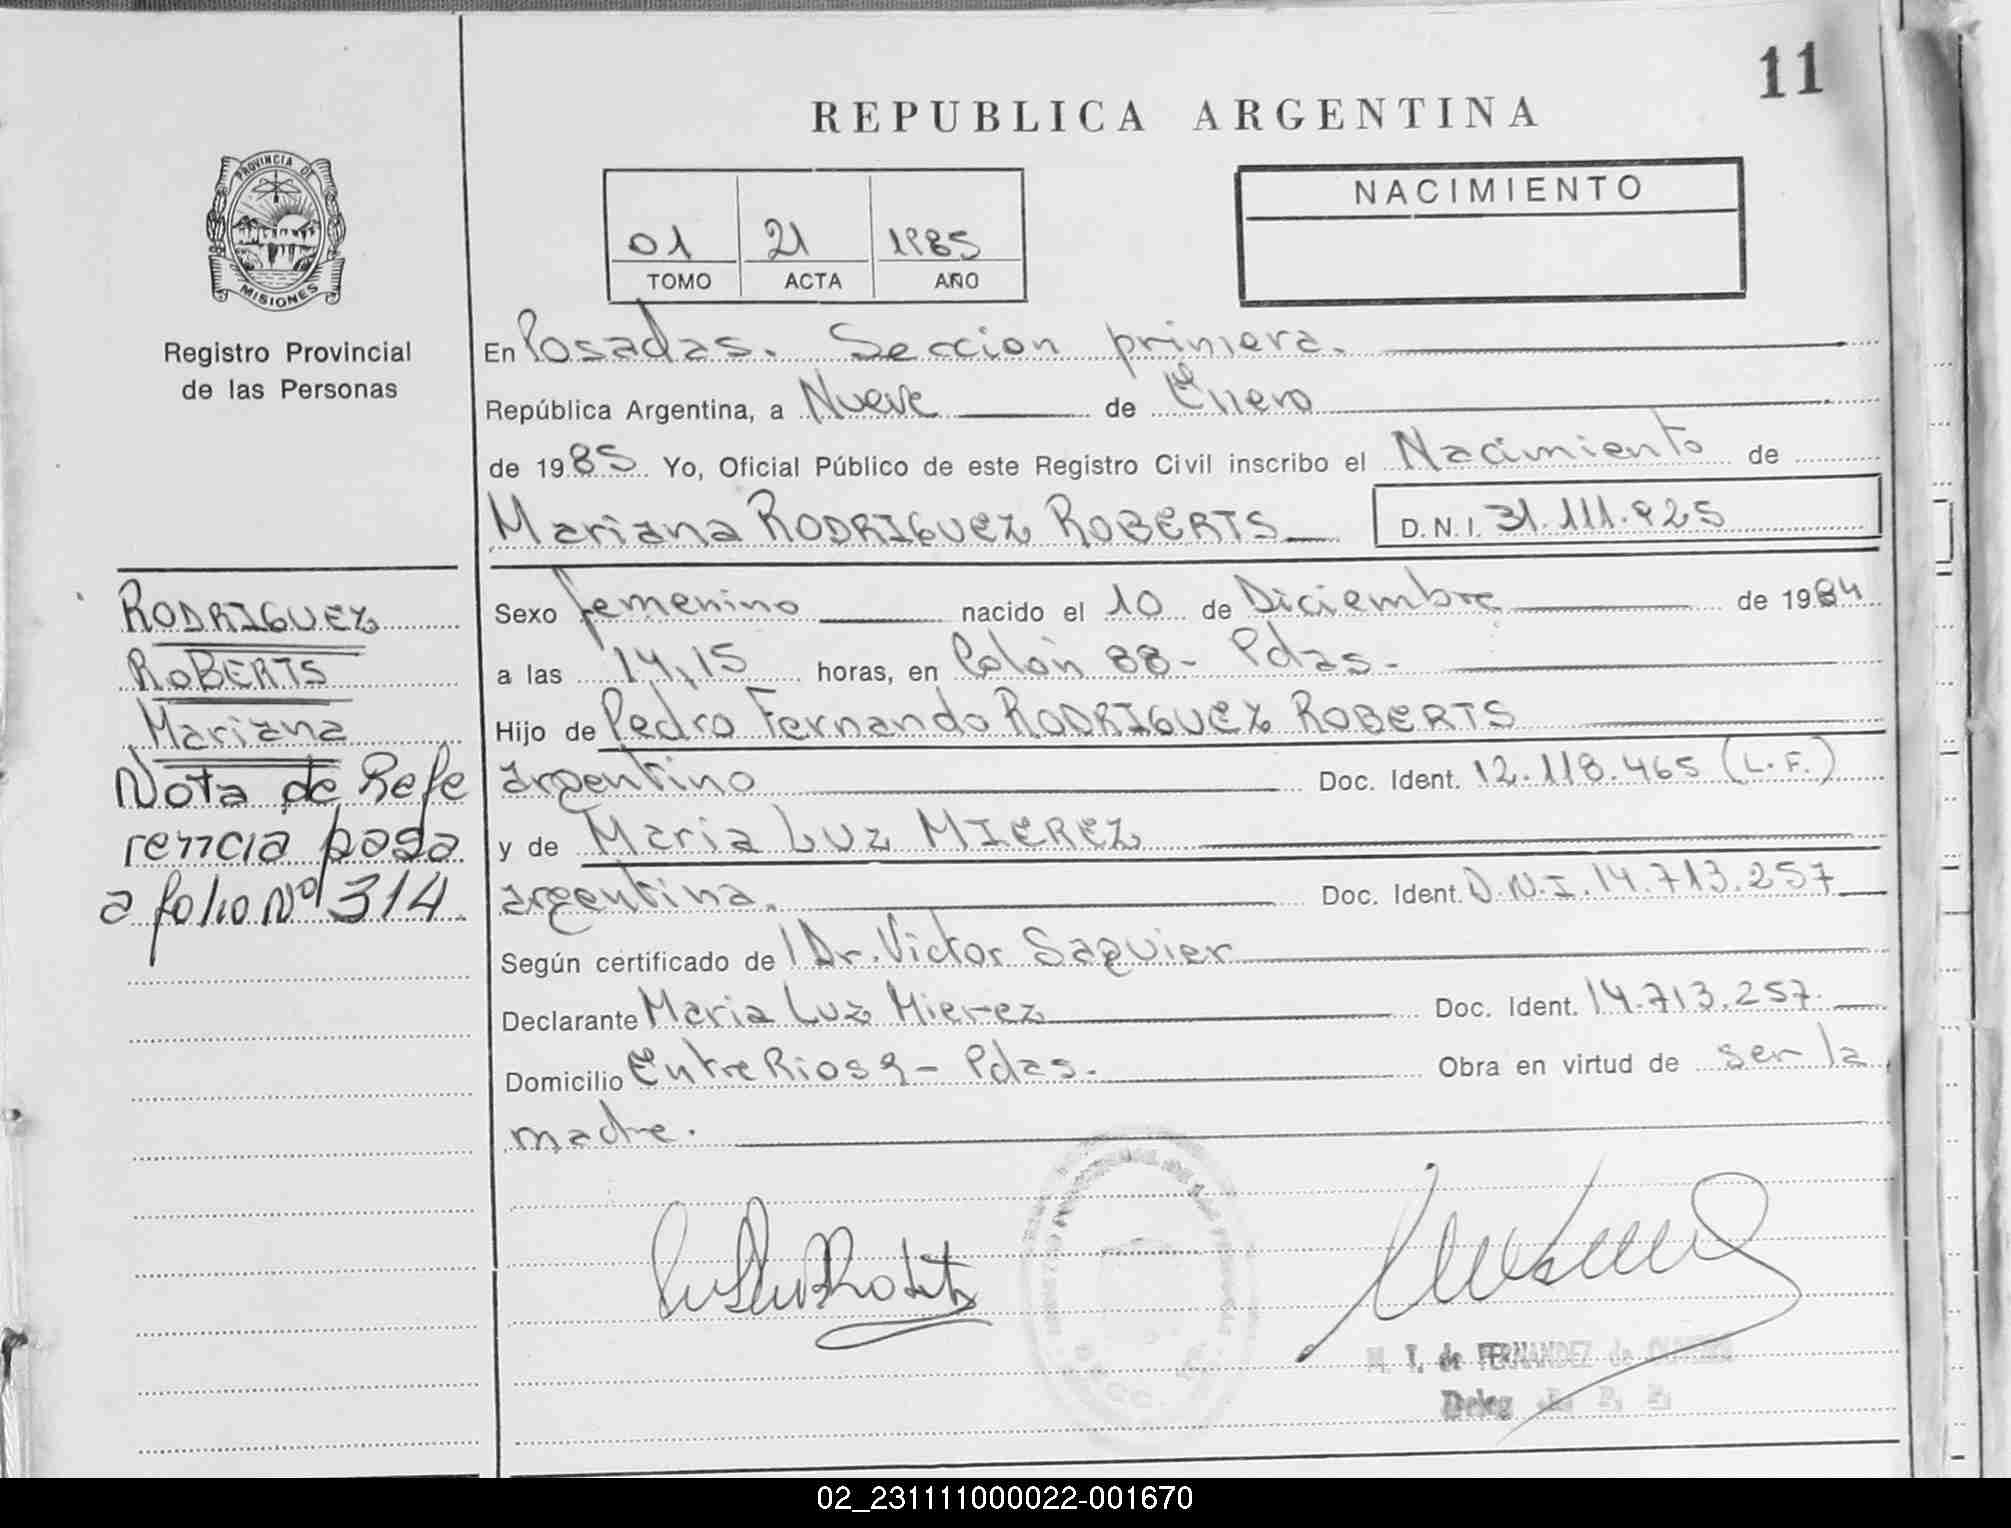 11
REPUBLICA ARGENTINA
PROVINCIA DE
MISIONES
Registro Provincial
de las Personas
01 21 1985
TOMO ACTA AÑO
NACIMIENTO
En Posadas. Seccion primera.
República Argentina, a Nueve de Enero
de 1985 Yo, Oficial Público de este Registro Civil inscribo el Nacimiento de
Mariana RODRIGUEZ ROBERTS D.N.I. 31.111.925
RODRIGUEZ
ROBERTS
Mariana
Nota de Refe
rencia pasa
a folio Nº 314
Sexo femenino nacido el 10 de Diciembre de 1984
a las 14,15 horas, en Colón 88- Pdas-
Hijo de Pedro Fernando RODRIGUEZ ROBERTS
argentino Doc. Ident. 12.118.465 (L.F.)
y de Maria Luz MIEREZ
argentina. Doc. Ident. D.N.I. 14.713.257
Según certificado de Dr. Victor Saguier
Declarante Maria Luz Mierez Doc. Ident. 14.713.257.
Domicilio Entre Rios 9- Pdas. Obra en virtud de ser la
madre.
M. T. de FERNANDEZ de
Deleg
02_231111000022-001670